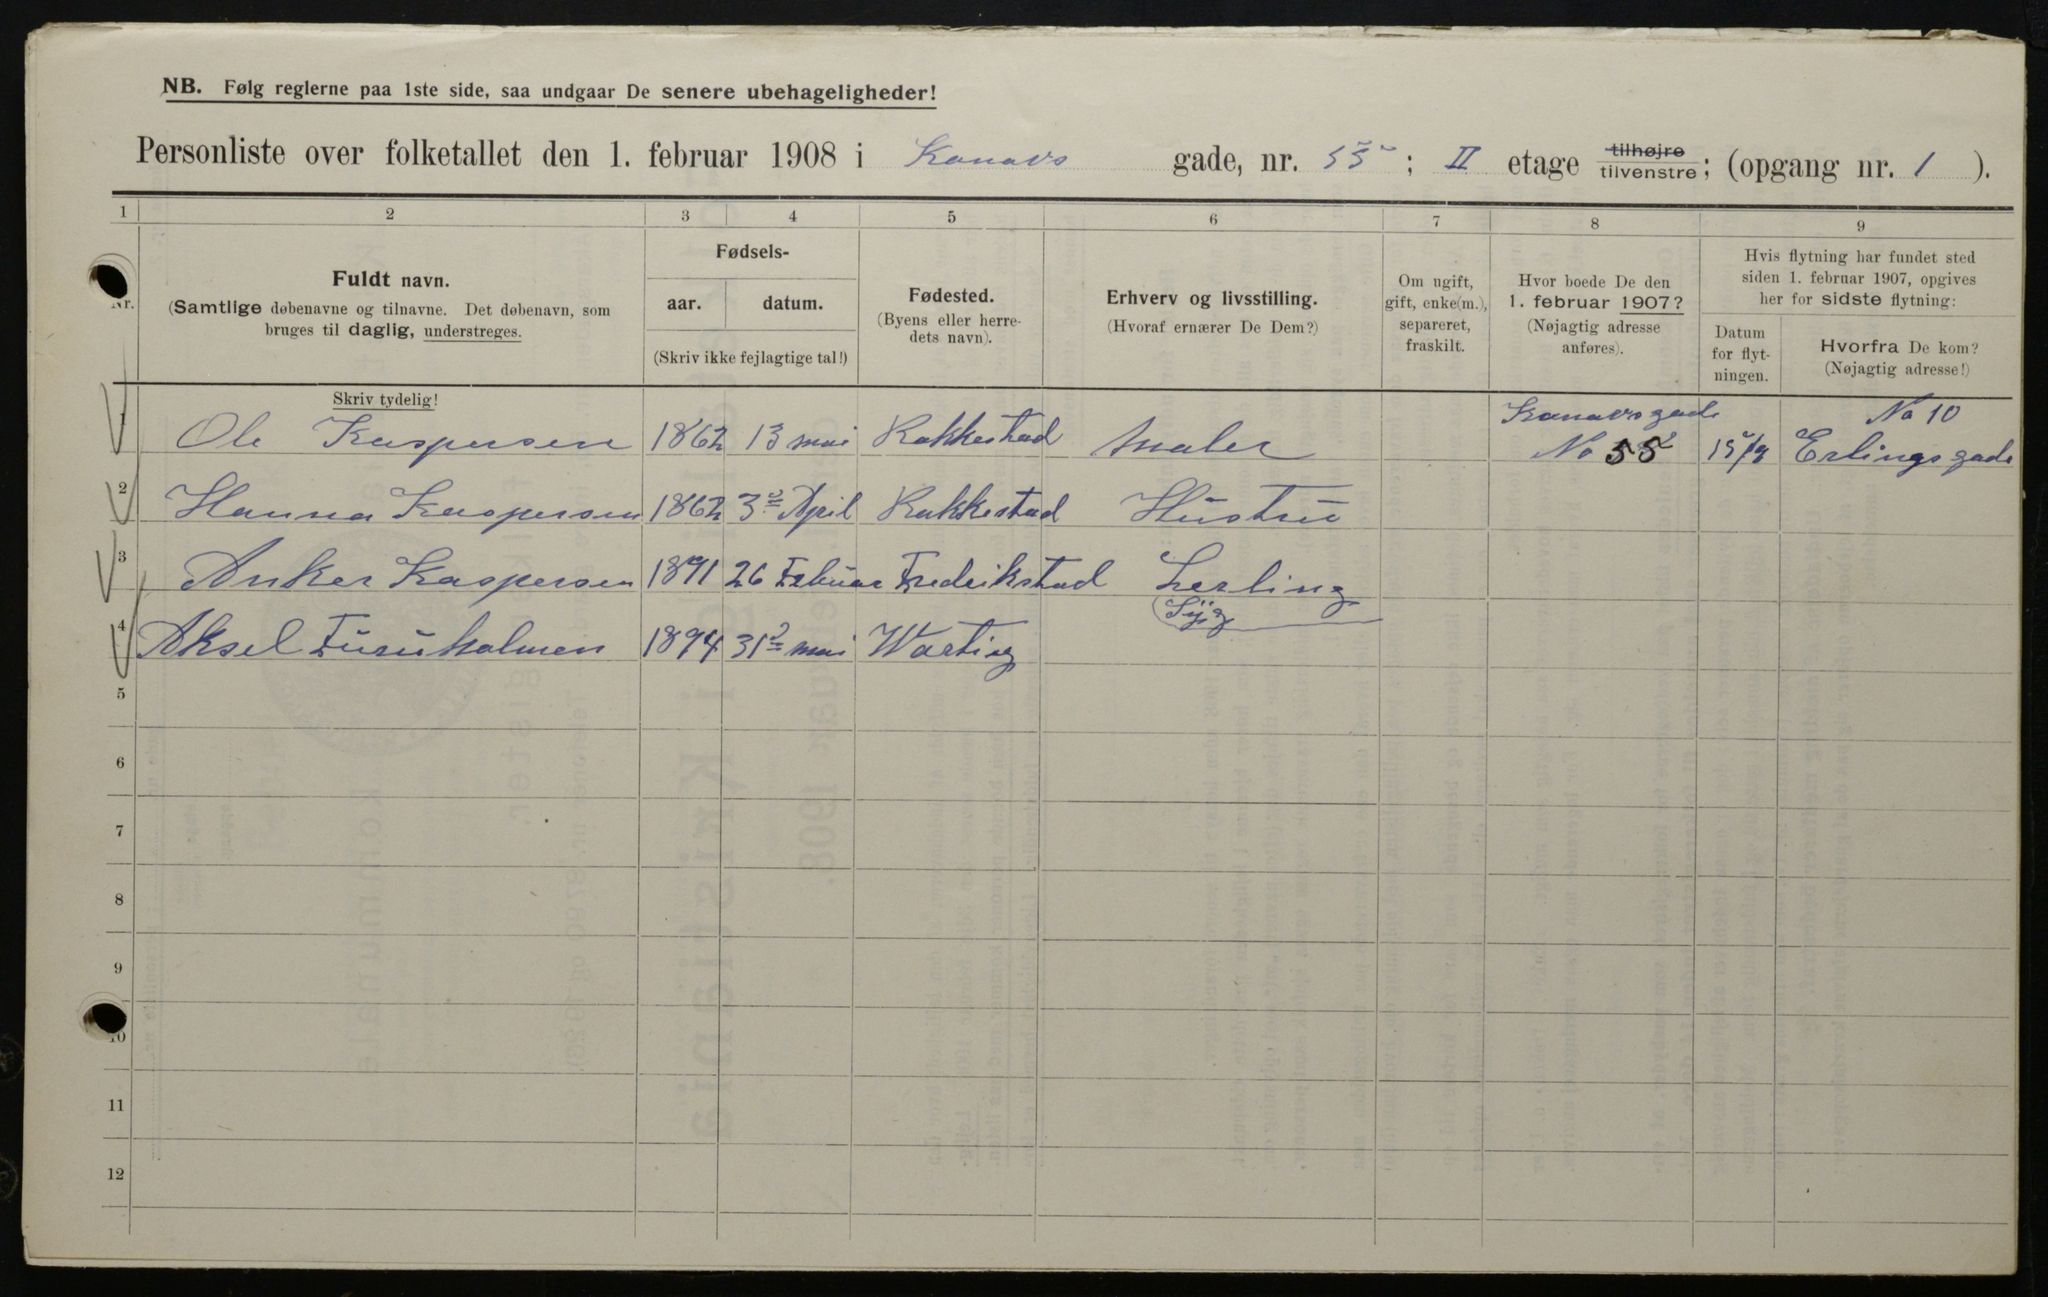 NB. Følg reglerne paa 1ste side, saa undgaar De senere ubehageligheder!
Personliste over folketallet den 1. februar 1908 i Kanavs gade, nr. 55; II etage tilhøjre tilvenstre; (opgang nr. 1).
1 2 3 4 5 6 7 8 9
Nr.
Fuldt navn.
(Samtlige døbenavne og tilnavne. Det døbenavn, som
bruges til daglig, understreges.
Skriv tydelig!
Fødsels-
aar. datum.
(Skriv ikke fejlagtige tal!)
Fødested.
(Byens eller herre-
dets navn).
Erhverv og livsstilling.
(Hvoraf ernærer De Dem?)
Om ugift,
gift, enke(m.),
separeret,
fraskilt.
Hvor boede De den
1. februar 1907?
(Nøjagtig adresse
anføres).
Hvis flytning har fundet sted
siden 1. februar 1907, opgives
her for sidste flytning:
Datum
for flyt-
ningen.
Hvorfra De kom?
(Nøjagtig adresse!)
Kanavsgade No 10
1 Ole Kaspersen 1862 13 mai Rakkestad Maler No 55 15/9 Erlingsgade
2 Hanna Kaspersen 1862 3 April Rakkestad Hustru
3 Anker Kaspersen 1891 26 Febuar Fredrikstad Lerling
Syg
4 Aksel Furuholmen 1894 31 mai Warteig
5
6
7
8
9
10
11
12